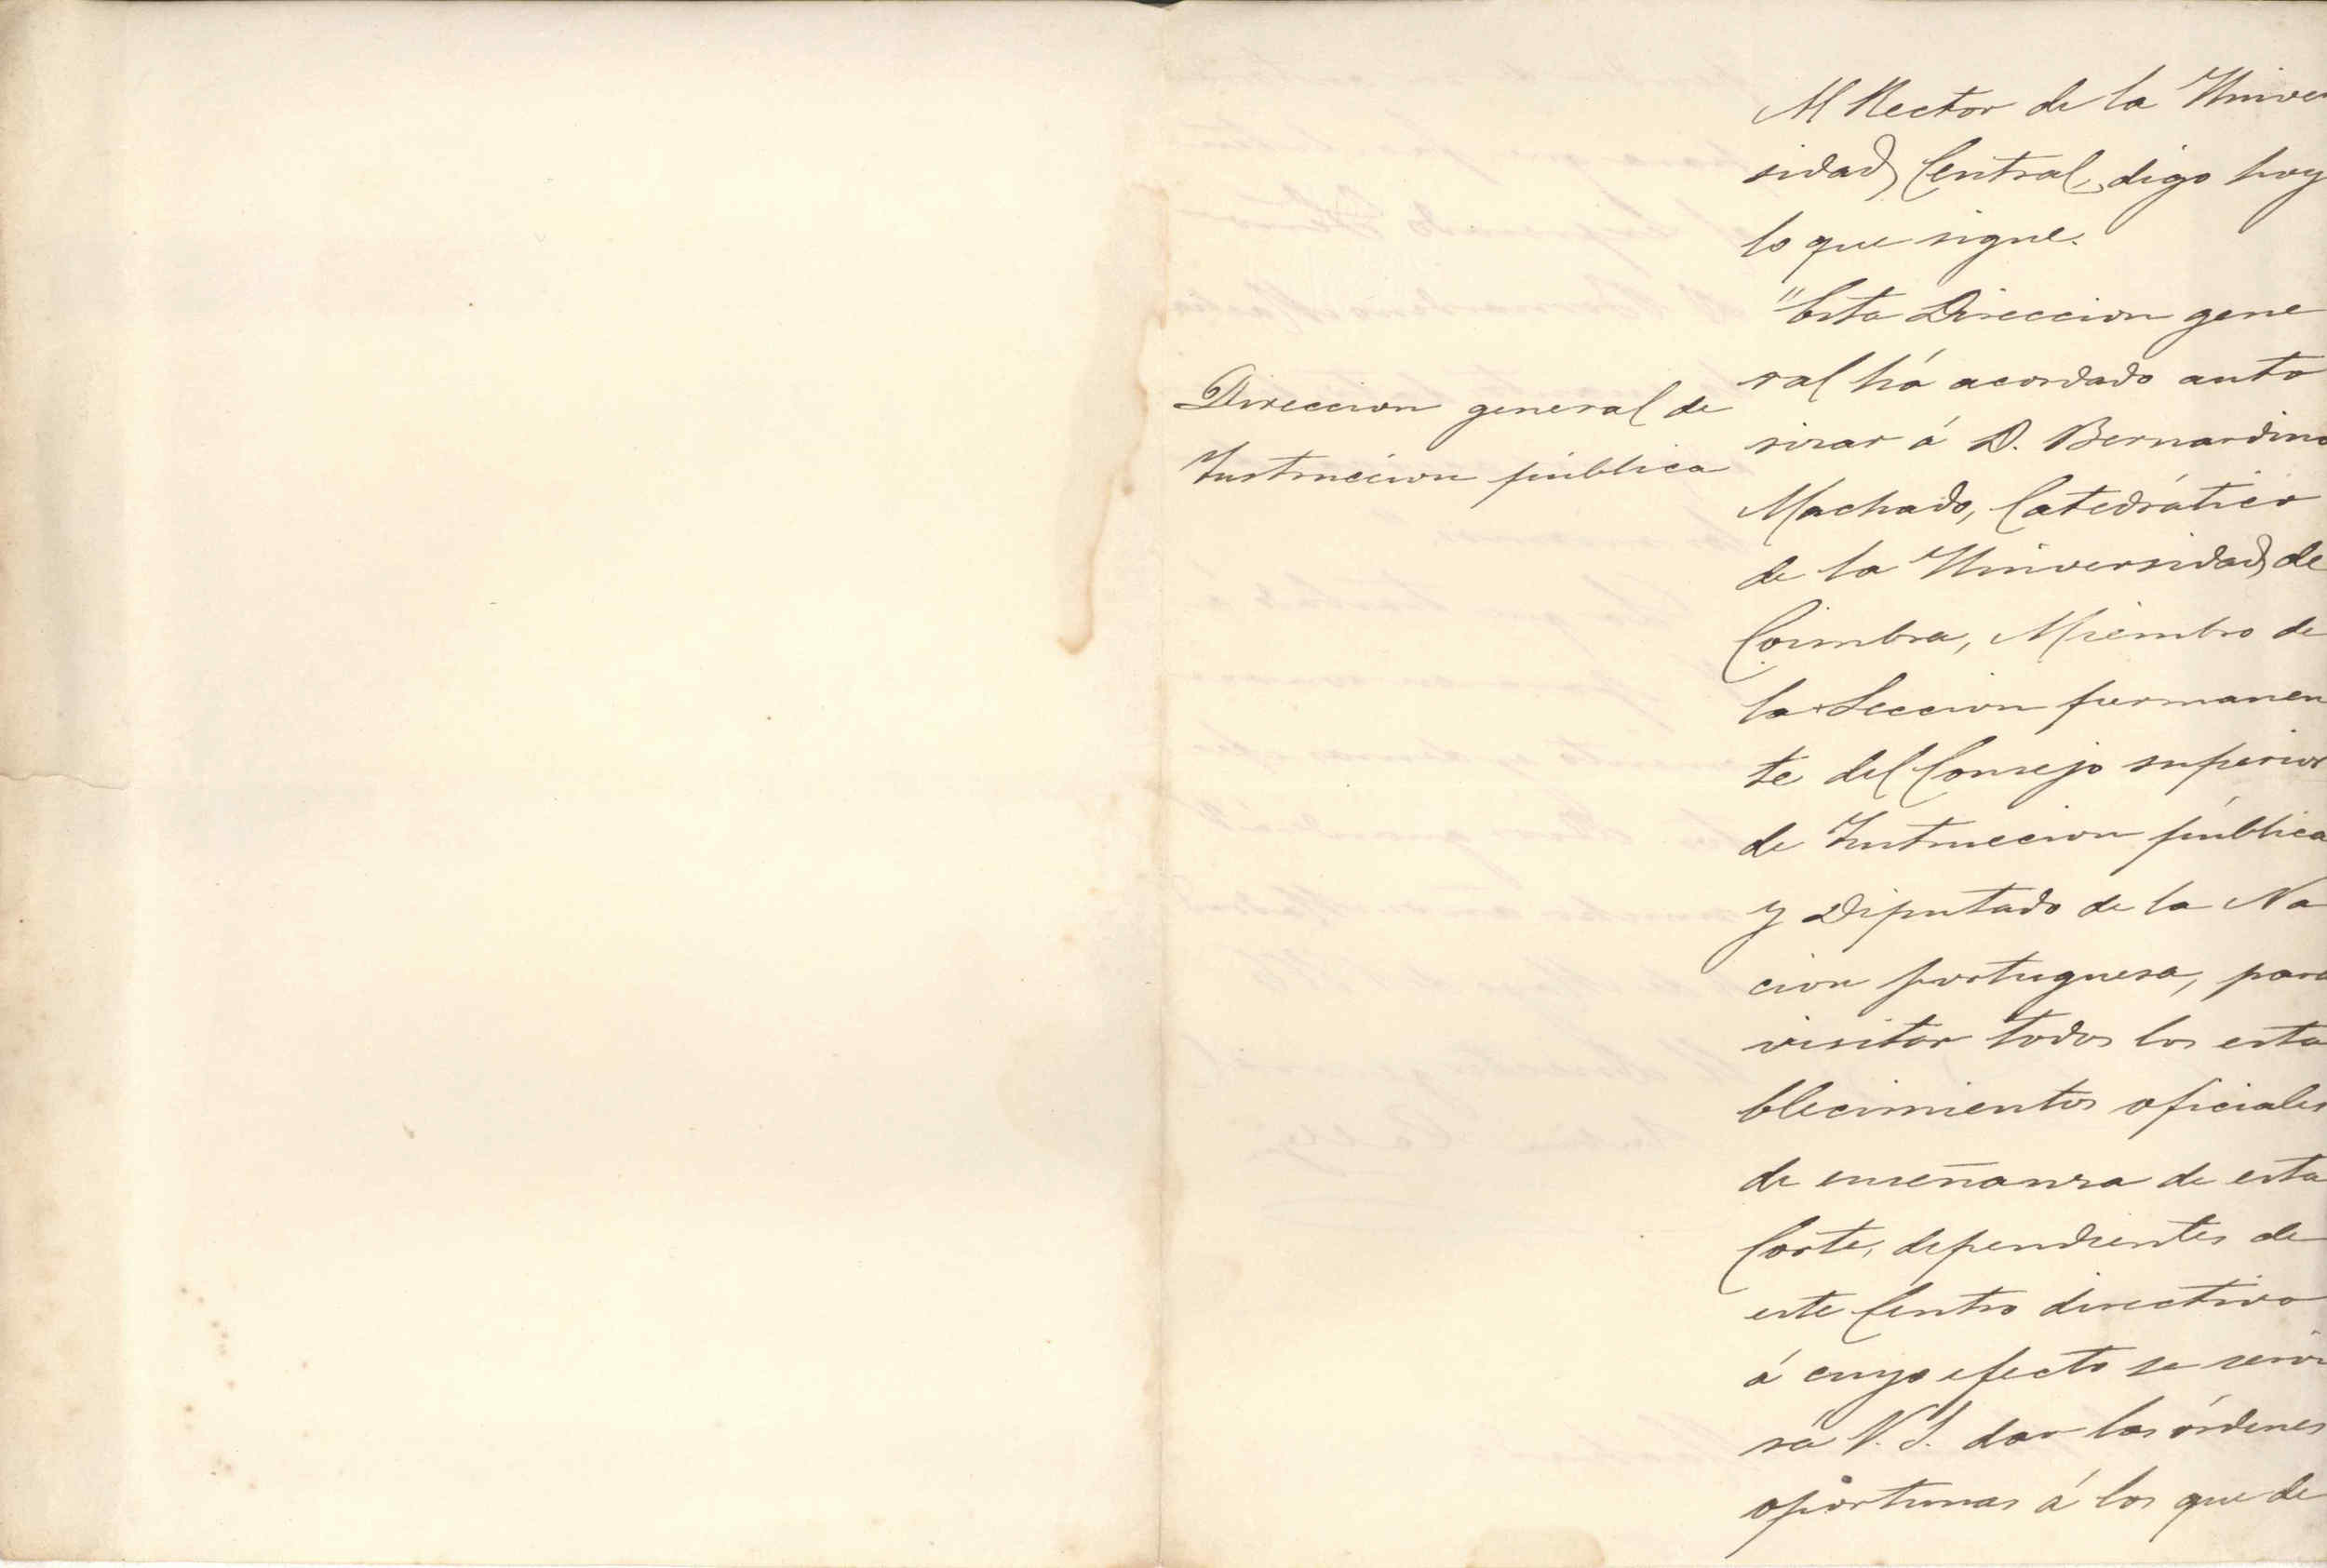 Direccion general de
Instruccion pública
Al Rector de la Univer
sidad Central, digo hoy
lo que sigue.
"Esta Direccion gene
ral há acordado auto
rizar á D. Bernardino
Machado, Catedrático
de la Universidad de
Coimbra, Miembro de
la Seccion permanen
te del Consejo superior
de Instruccion pública
y Diputado de la Na
cion portuguesa, para
visitar todos los esta
blecimientos oficiales
de enseñanza de esta
Corte, dependientes de
este Centro directivo
á cuyo efecto se servi
rá V. I. dar las órdenes
oportunas á los que de